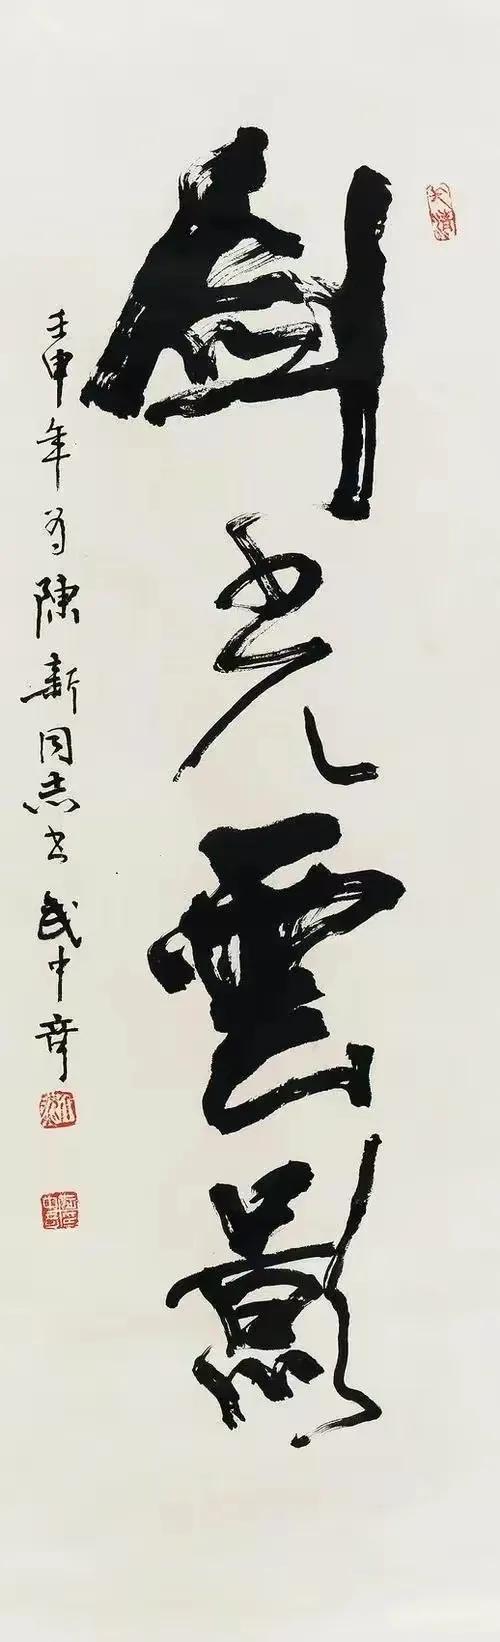 劍光雲影
壬申年為陳新同志書武中奇